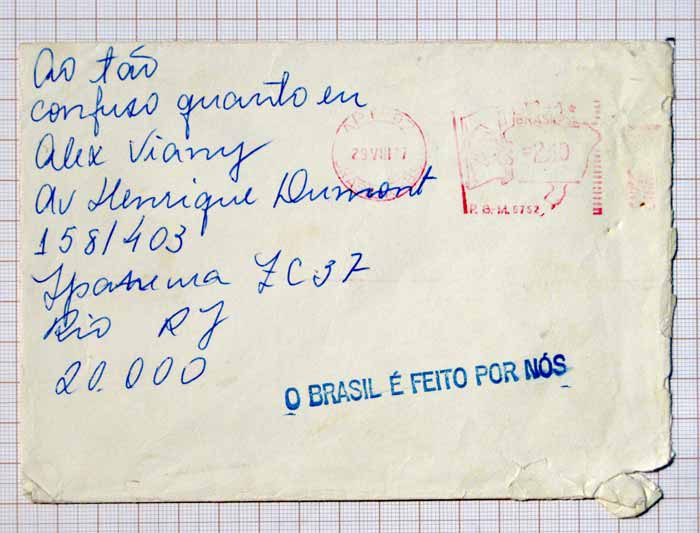 Ao tão
confuso quanto eu
Alex Viany
Av Henrique Dumont
158/403
Ipanema ZC 37
Rio RJ
20.000
29 VIII 77
BRASIL
P. B. M. 6752
O BRASIL É FEITO POR NÓS